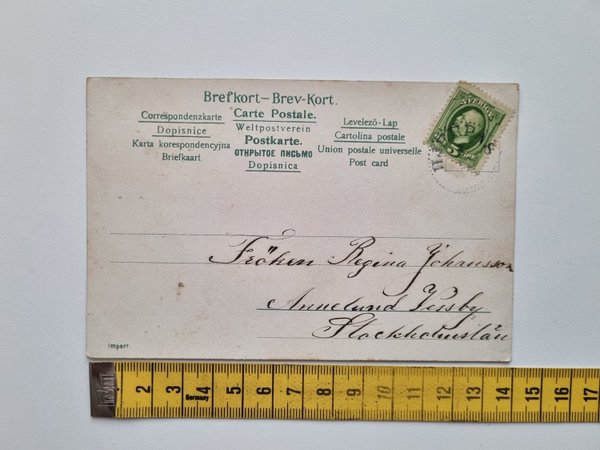 Brefkort – Brev-Kort.
Correspondenzkarte
Dopisnice
Karta korespondencyjna
Briefkaart
Carte Postale.
Weltpostverein
Postkarte.
ОТКРЫТОЕ ПИСЬМО
Dopisnica
Levelezö-Lap
Cartolina postale
Union postale universelle
Post card
SVERIGE
5
Fröken Regina Johansson
Annelund
Stockholmslän
Import
2 3 4 5 6 7 8 9 10 11 12 13 14 15 16 17
Germany